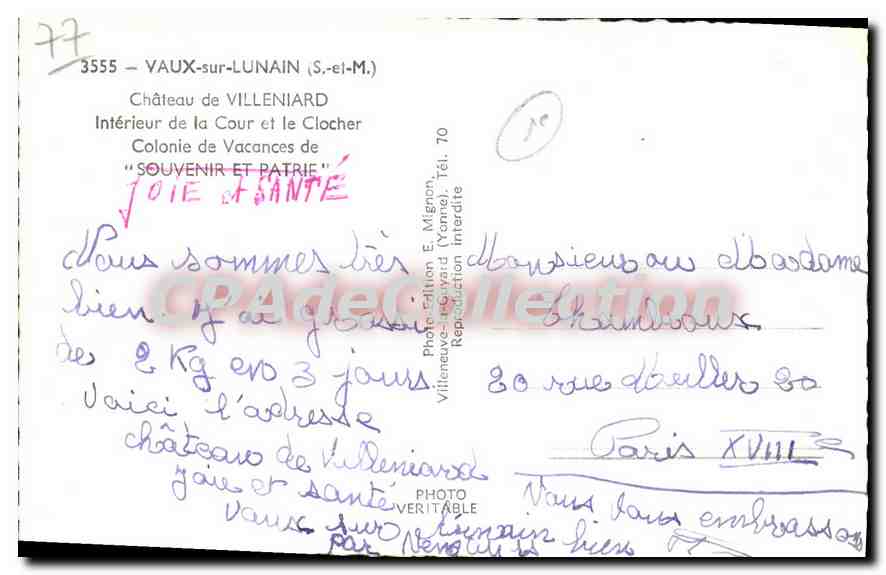 77
3555 – VAUX-sur-LUNAIN (S.-et-M.)
Château de VILLENIARD
Intérieur de la Cour et le Clocher
Colonie de Vacances de
"SOUVENIR ET PATRIE"
JOIE et SANTÉ
Nous sommes très
bien. J'ai grossi
de 2 Kg en 3 jours.
Voici l'adresse
château de Villeniard
Joie et santé
Vaux sur Lunain
par
Photo-Edition E. Mignon,
Villeneuve-la-Guyard (Yonne). Tél. 70
Reproduction interdite
PHOTO
VERITABLE
Monsieur ou Madame
20 rue 20
Paris XVIIIe
Nous vous embrassons
bien
CPAdeCollection